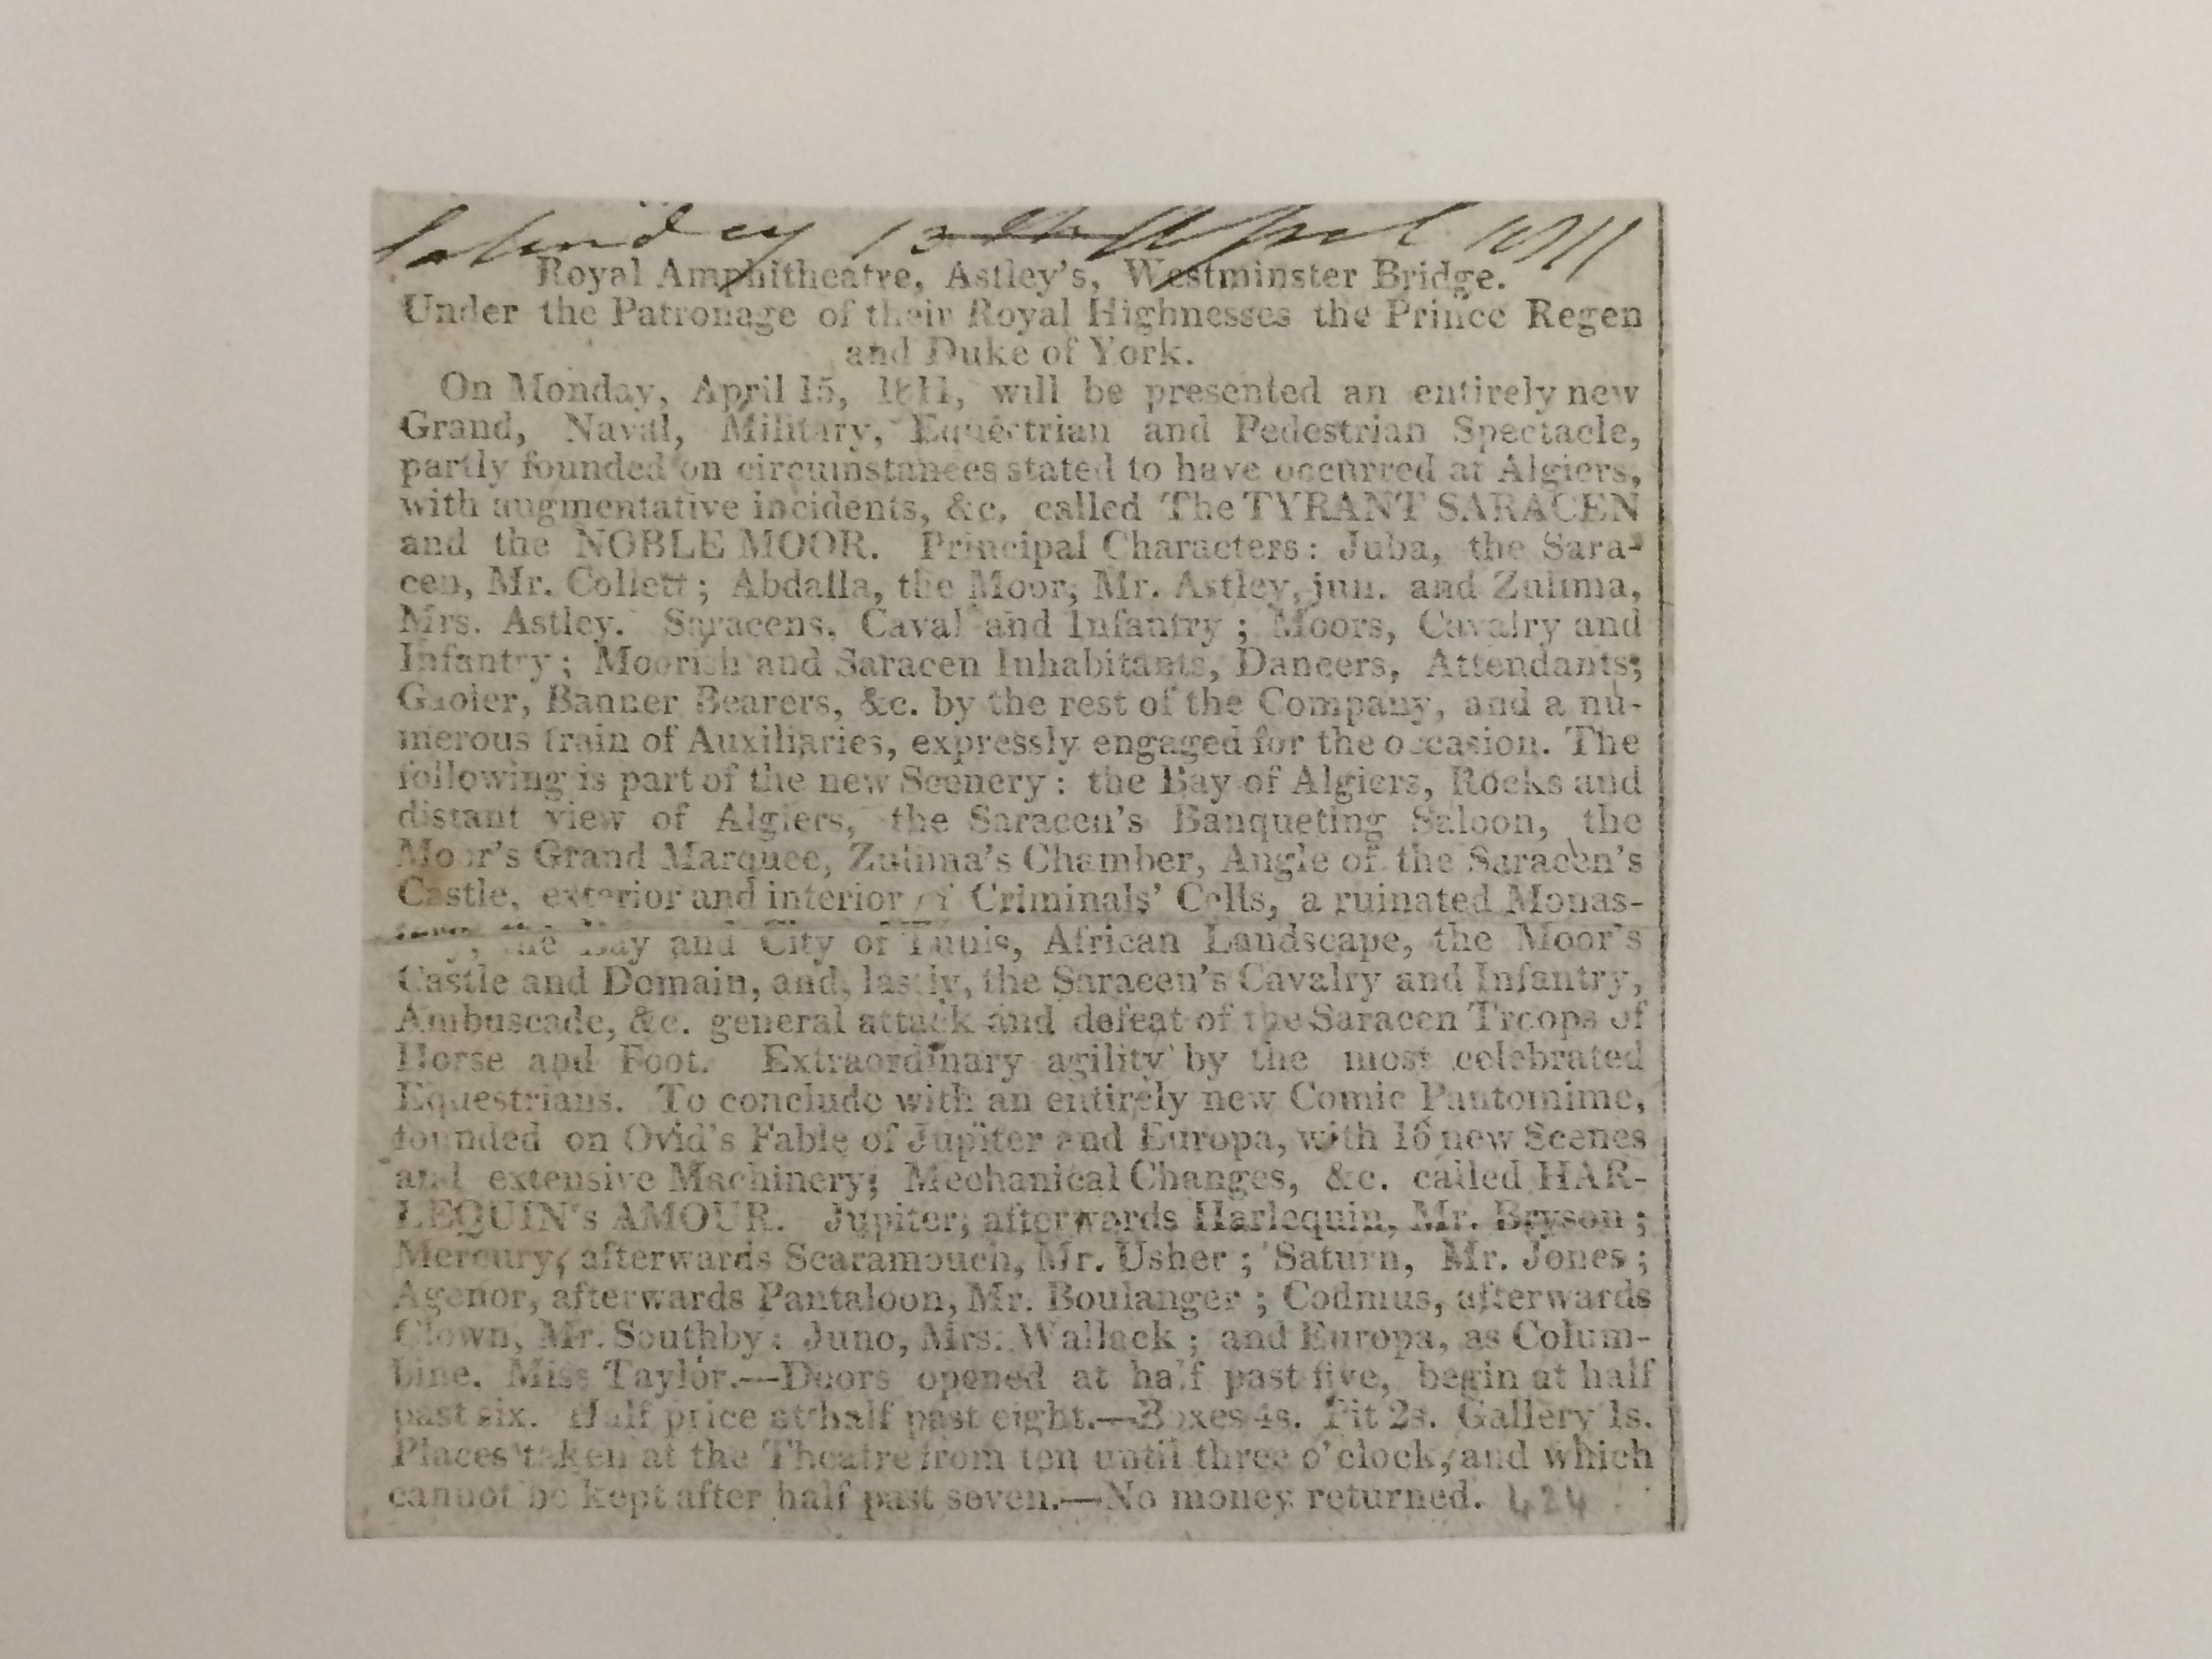 Saturday 13th April 1811
Royal Amphitheatre, Astley's, Westminster Bridge.
Under the Patronage of their Royal Highnesses the Prince Regen
and Duke of York.
On Monday, April 15, 1811, will be presented an entirely new
Grand, Naval, Military, Equestrian and Pedestrian Spectacle,
partly founded on circumstances stated to have occurred at Algiers,
with augmentative incidents, &c. called The TYRANT SARACEN
and the NOBLE MOOR. Principal Characters: Juba, the Sara-
cen, Mr. Collett; Abdalla, the Moor, Mr. Astley, jun. and Zulima,
Mrs. Astley. Saracens, Caval and Infantry; Moors, Cavalry and
Infantry; Moorish and Saracen Inhabitants, Dancers, Attendants;
Gaoler, Banner Bearers, &c. by the rest of the Company, and a nu-
merous train of Auxiliaries, expressly engaged for the occasion. The
following is part of the new Scenery: the Bay of Algiers, Rocks and
distant view of Algiers, the Saracen's Banqueting Saloon, the
Moor's Grand Marquee, Zulima's Chamber, Angle of the Saracen's
Castle, exterior and interior of Criminals' Cells, a ruinated Monas-
tery, the Bay and City of Tunis, African Landscape, the Moor's
Castle and Domain, and, lastly, the Saracen's Cavalry and Infantry,
Ambuscade, &c. general attack and defeat of the Saracen Troops of
Horse and Foot. Extraordinary agility by the most celebrated
Equestrians. To conclude with an entirely new Comic Pantomime,
founded on Ovid's Fable of Jupiter and Europa, with 16 new Scenes
and extensive Machinery; Mechanical Changes, &c. called HAR-
LEQUIN's AMOUR. Jupiter, afterwards Harlequin, Mr. Bryson;
Mercury, afterwards Scaramouch, Mr. Usher; Saturn, Mr. Jones;
Agenor, afterwards Pantaloon, Mr. Boulanger; Codmus, afterwards
Clown, Mr. Southby: Juno, Mrs. Wallack; and Europa, as Colum-
bine, Miss Taylor.—Doors opened at half past five, begin at half
past six. Half price at half past eight.—Boxes 4s. Pit 2s. Gallery 1s.
Places taken at the Theatre from ten until three o'clock, and which
cannot be kept after half past seven.—No money returned. 424